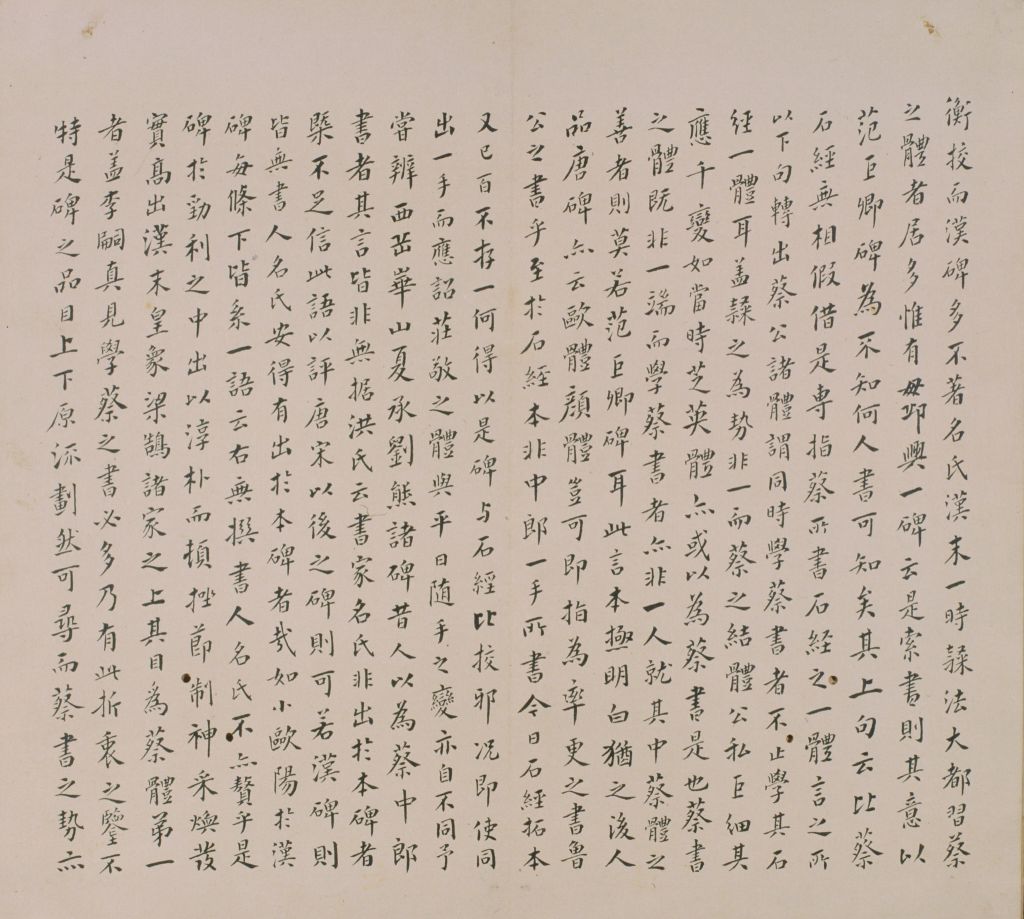 衡挍而漢碑多不著名氏漢末一時隸法大都習蔡
之體者居多惟有毋邱興一碑云是索書則其意以
范巨卿碑為不知何人書可知矣其上句云比蔡
石經無相假借是専指蔡所書石経之一體言之所
以下句轉出蔡公諸體謂同時學蔡書者不止學其石
經一體耳盖隸之為勢非一而蔡之結體公私巨細其
應千變如當時芝英體亦或以為蔡書是也蔡書
之體既非一端而學蔡書者亦非一人就其中蔡體之
善者則莫若范巨卿碑耳此言本極明白猶之後人
品唐碑亦云歐體顔體豈可即指為率更之書魯
公之書乎至於石經本非中郎一手所書今日石經拓本
又已百不存一何得以是碑与石經比挍邪况即使同
出一手而應詔莊敬之體與平日随手之變亦自不同予
嘗辨西嶽華山夏承劉熊諸碑昔人以為蔡中郎
書者其言皆非無据洪氏云書家名氏非出於本碑者
槩不足信此語以評唐宋以後之碑則可若漢碑則
皆無書人名氏安得有出於本碑者哉如小歐陽於漢
碑每條下皆系一語云右無撰書人名氏不亦贅乎是
碑於勁利之中出以淳朴而頓挫節制神采煥發
實髙出漢末皇象梁鵠諸家之上其目為蔡體第一
者盖李嗣真見學蔡之書必多乃有此折衷之鑒不
特是碑之品目上下原流劃然可尋而蔡書之勢亦